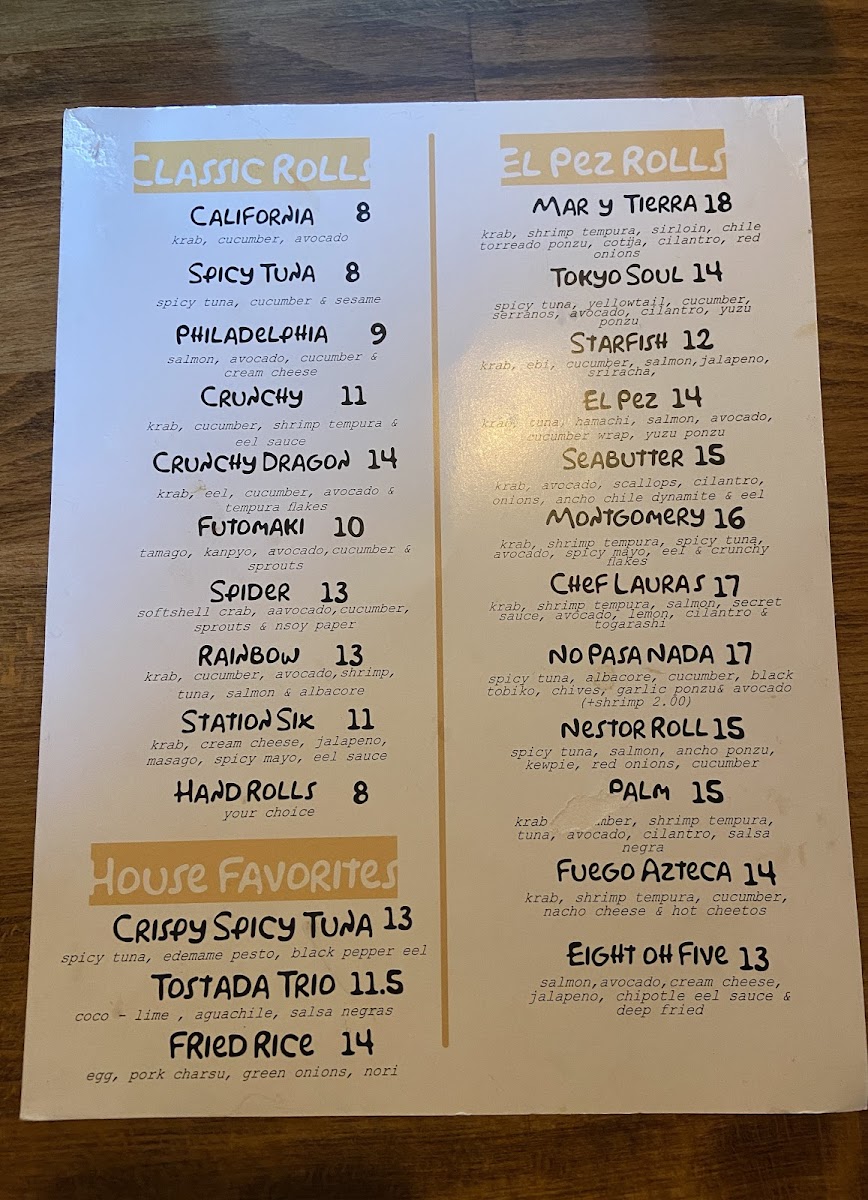 CLASSIC ROLLS
CALIFORNIA 8
krab, cucumber, avocado
SPICY TUNA 8
spicy tuna, cucumber & sesame
PHILADELPHIA 9
salmon, avocado, cucumber &
cream cheese
CRUNCHY 11
krab, cucumber, shrimp tempura &
eel sauce
CRUNCHY DRAGON 14
krab, eel, cucumber, avocado &
tempura flakes
FUTOMAKI 10
tamago, kanpyo, avocado,cucumber &
sprouts
SPIDER 13
softshell crab, aavocado,cucumber,
sprouts & nsoy paper
RAINBOW 13
krab, cucumber, avocado,shrimp,
tuna, salmon & albacore
STATION SIX 11
krab, cream cheese, jalapeno,
masago, spicy mayo, eel sauce
HAND ROLLS 8
your choice
HOUSE FAVORITES
CRISPY SPICY TUNA 13
spicy tuna, edemame pesto, black pepper eel
TOSTADA TRIO 11.5
coco - lime , aguachile, salsa negras
FRIED RICE 14
egg, pork charsu, green onions, nori
EL PEZ ROLLS
MAR Y TIERRA 18
krab, shrimp tempura, sirloin, chile
torreado ponzu, cotija, cilantro, red
onions
TOKYO SOUL 14
spicy tuna, yellowtail, cucumber,
serranos, avocado, cilantro, yuzu
ponzu
STARFISH 12
krab, ebi, cucumber, salmon,jalapeno,
sriracha,
EL PEZ 14
krab, tuna, hamachi, salmon, avocado,
cucumber wrap, yuzu ponzu
SEABUTTER 15
krab, avocado, scallops, cilantro,
onions, ancho chile dynamite & eel
MONTGOMERY 16
krab, shrimp tempura, spicy tuna,
avocado, spicy mayo, eel & crunchy
flakes
CHEF LAURAS 17
krab, shrimp tempura, salmon, secret
sauce, avocado, lemon, cilantro &
togarashi
NO PASA NADA 17
spicy tuna, albacore, cucumber, black
tobiko, chives, garlic ponzu& avocado
(+shrimp 2.00)
NESTOR ROLL 15
spicy tuna, salmon, ancho ponzu,
kewpie, red onions, cucumber
PALM 15
krab shrimp tempura,
tuna, avocado, cilantro, salsa
negra
FUEGO AZTECA 14
krab, shrimp tempura, cucumber,
nacho cheese & hot cheetos
EIGHT OH FIVE 13
salmon,avocado,cream cheese,
jalapeno, chipotle eel sauce &
deep fried